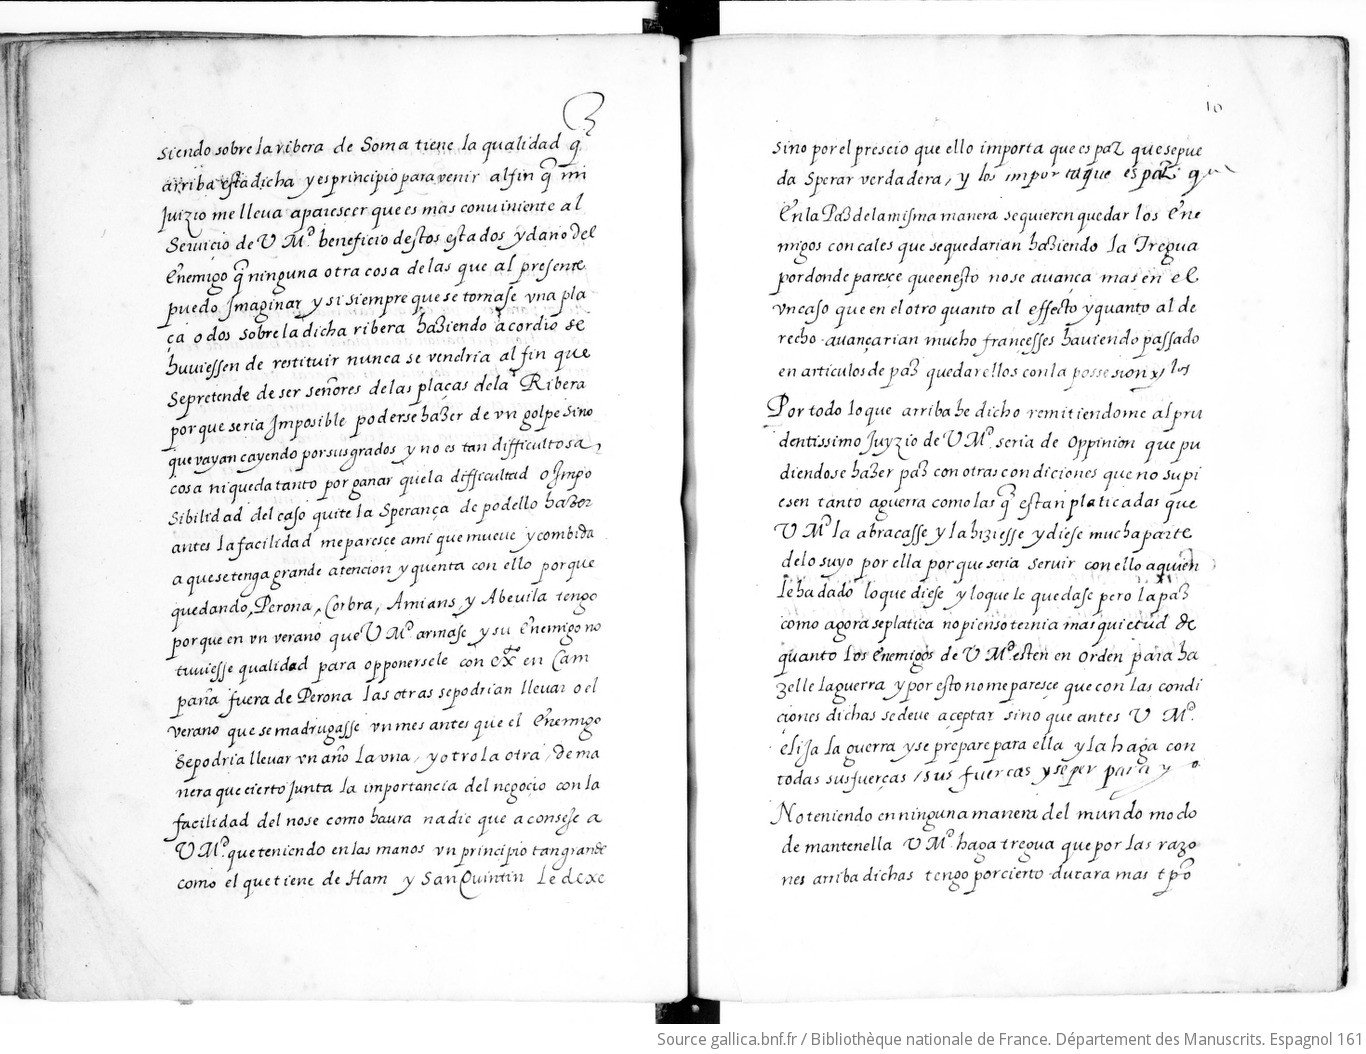 siendo sobre la ribera de Soma tiene la qualidad q̃
arriba esta dicha y es principio para venir al fin q̃ mi
Juizio me lleva a parescer que es mas conuiniente al
Seruicio de V M.ᵈ beneficio destos estados y daño del
Enemigo q̃ ninguna otra cosa de las que al presente
puedo Jmaginar y si siempre que se tomase vna pla
ça o dos sobre la dicha ribera haziendo acordio se
huuiessen de restituir nunca se vendria al fin que
Sepretende de ser señores de las plaças dela Ribera
por que seria Jmposible poderse hazer de vn golpe sino
que vayan cayendo por sus grados y no es tan difficultosa,
cosa ni queda tanto por ganar que la difficultad o Jmpo
Sibilidad del caso quite la Sperança de podello hazer
antes la facilidad me paresce ami que mueue y combida
a que se tenga grande atencion y quenta con ello por que
quedando, Perona, Corbra, Amians, y Abeuila tengo
por que en vn verano que V M.ᵈ armase y su Enemigo no
tuuiesse qualidad para opponersele con exᵗᵒ en Cam
paña fuera de Perona las otras se podrian lleuar o el
verano que se madrugasse vn mes antes que el Enemigo
Se podria lleuar vn año la vna, y otro la otra, de ma
nera que cierto Junta la importancia del negocio con la
facilidad del no se como haura nadie que aconsese a
V M.ᵈ que teniendo en las manos vn principio tan grande
como el que tiene de Ham y San Quintin le dexe
10
sino por el prescio que ello importa que es paz que se pue
da Sperar verdadera, y los importa que es paz que
En la Paz de la misma manera se quieren quedar los Ene
migos con cales que se quedarian haziendo la Tregua
por donde paresce que en esto no se auança mas en el
vn caso que en el otro quanto al effecto y quanto al de
recho auançarian mucho françesses hauiendo passado
en articulos de paz quedar ellos con la possesion y los
Por todo lo que arriba he dicho remitiendome al pru
dentissimo Juyzio de V M.ᵈ seria de oppinion que pu
diendose hazer paz con otras condiciones que no supi
esen tanto a guerra como las q̃ estan platicadas que
V Mᵈ la abracasse y la hiziesse y diese mucha parte
de lo suyo por ella por que seria seruir con ello a quien
le ha dado lo que diese y lo que le quedase pero la paz
como agora se platica no pienso ternia mas quietud de
quanto los Enemigos de V Mᵈ esten en orden para ha
zelle la guerra y por esto no me paresçe que con las condi
çiones dichas se deue aceptar sino que antes V Mᵈ.
elija la guerra y se prepare para ella y la haga con
todas sus fuerças / sus fuercas y se per para y
No teniendo en ninguna manera del mundo modo
de mantenella V Mᵈ haga tregua que por las razo
nes arriba dichas tengo por cierto durara mas tp̃o